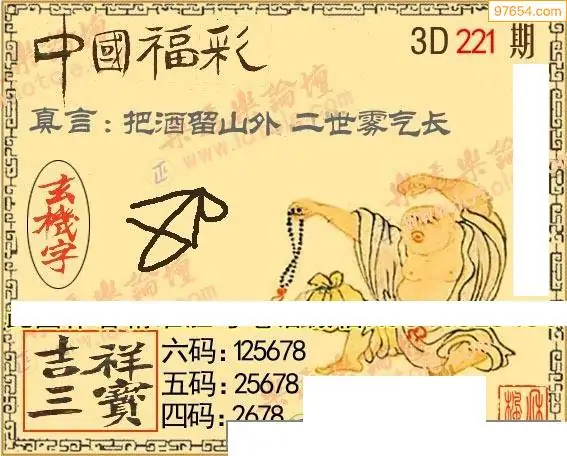 97654.com
中國福彩
3D 221 期
真言:把酒留山外 二世雾气长
玄機字
吉祥三寶
六码:125678
五码:25678
四码:2678